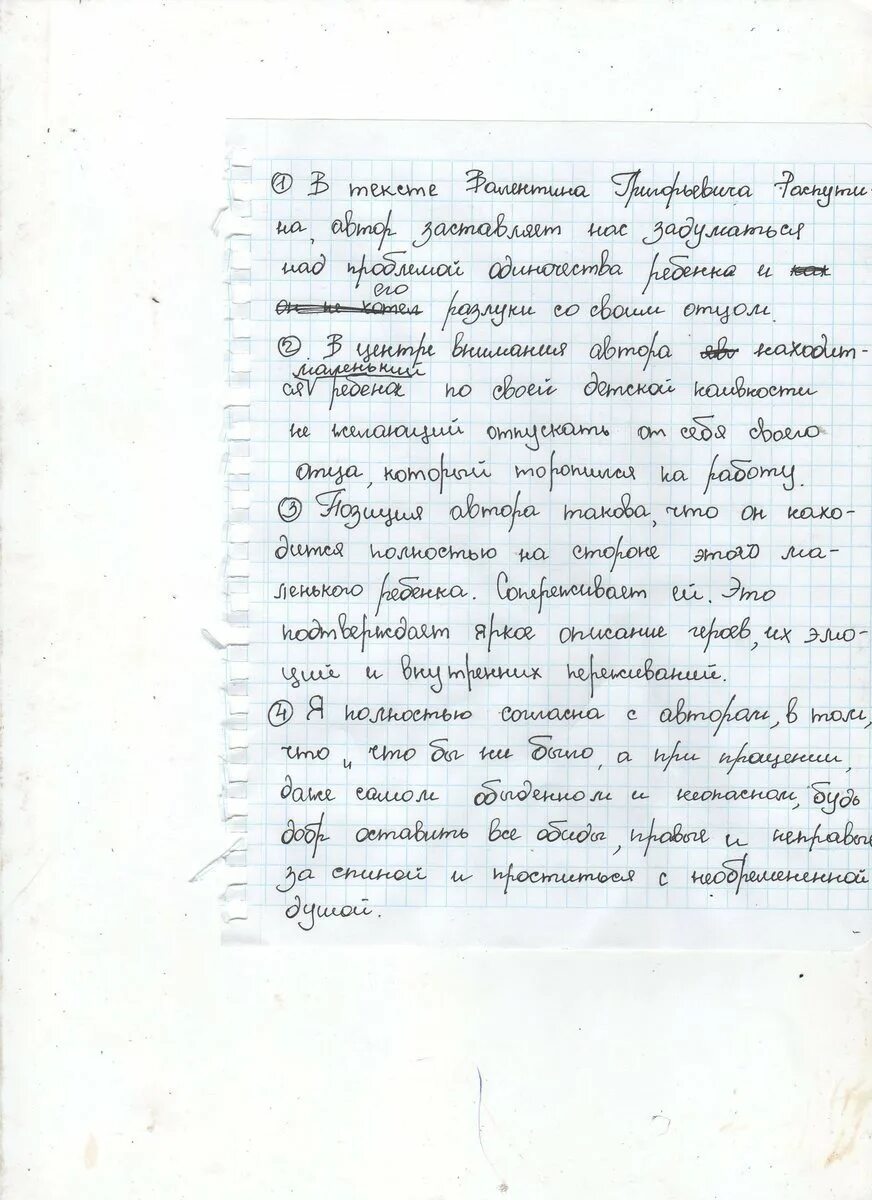 ① В тексте Валентина Григорьевича Распути-
на, автор заставляет нас задуматься
над проблемой одиночества ребенка и как
его
он не хотел разлуки со своим отцом.
② В центре внимания автора находит-
маленький
ся ребенок по своей детской наивности
не желающий отпускать от себя своего
отца, который торопился на работу.
③ Позиция автора такова, что он нахо-
дится полностью на стороне этого ма-
ленького ребенка. Сопереживает ей. Это
подтверждает яркое описание героев, их эмо-
ций и внутренних переживаний.
④ Я полностью согласна с автором, в том,
что „ что бы ни было, а при прощении,
даже самом обыденном и неопасном, будь
добр оставить все обиды, правые и неправые
за спиной и проститься с необремененной
душой.